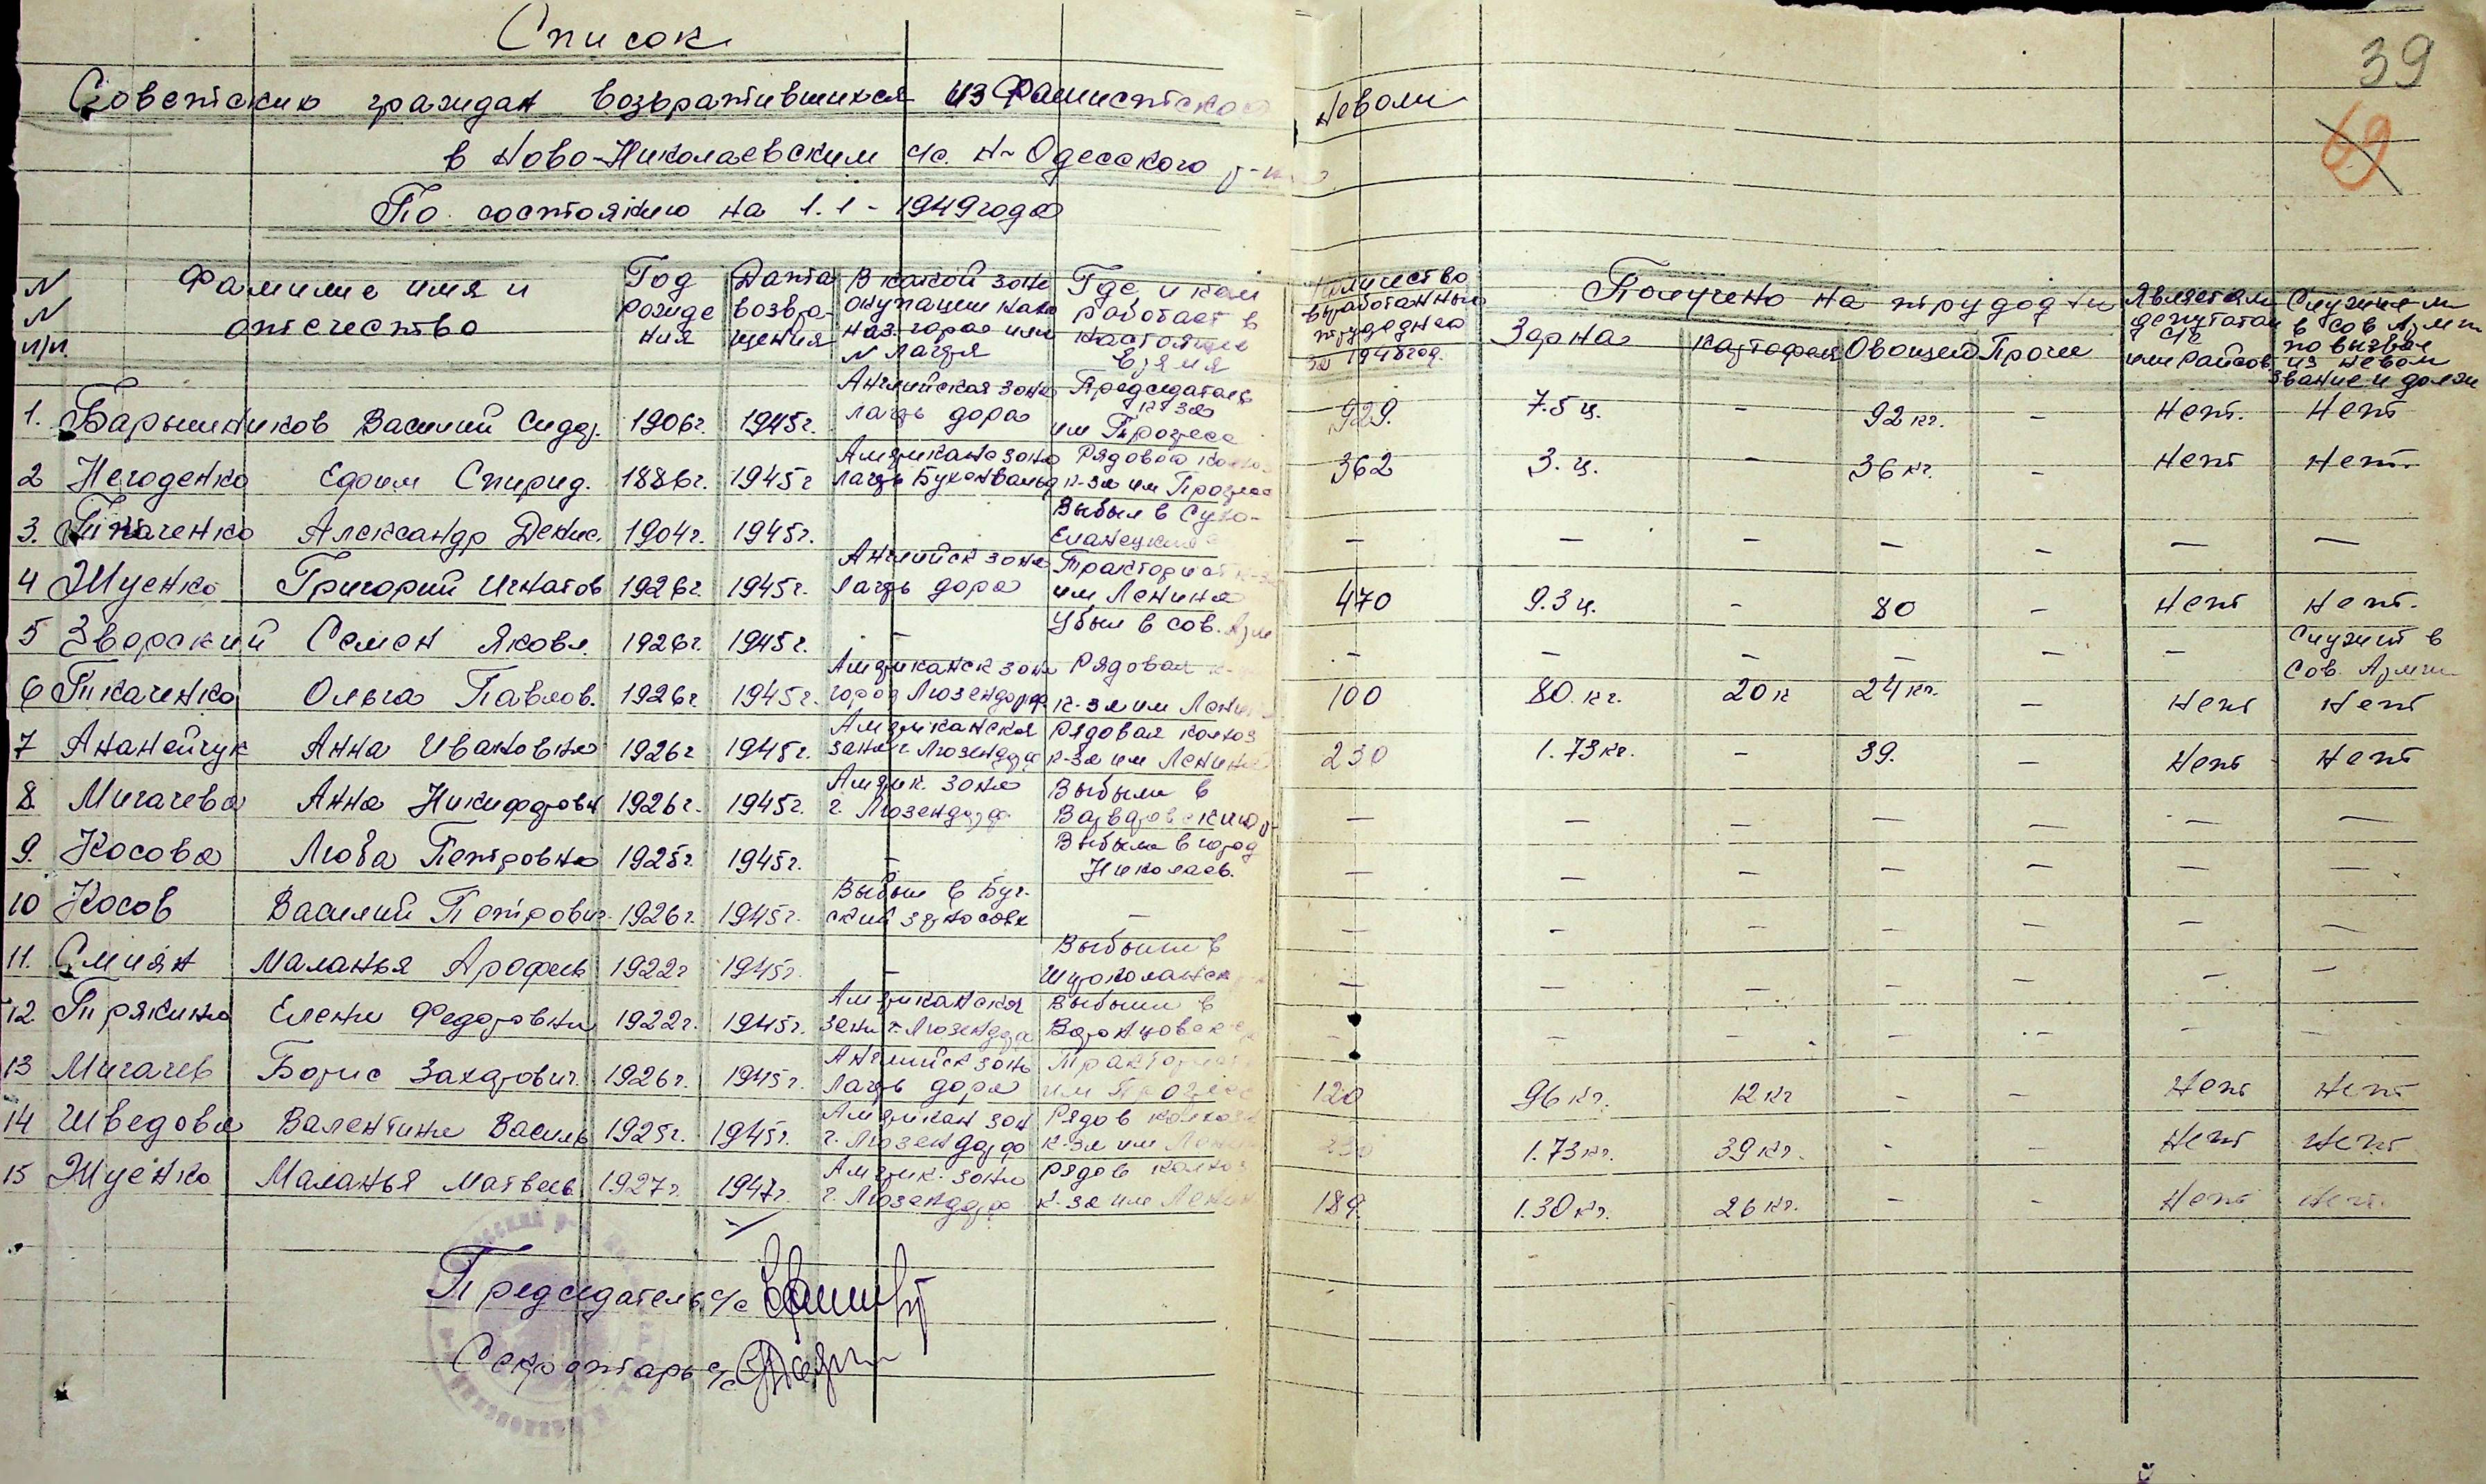 39
69
Список
Советских граждан возвратившихся из Фашистской неволи
в Ново-Николаевским с/с. Н-Одесского р-на
По состоянию на 1.1-1949 года
N N п/п
Фамилие имя и отечество
Год рожде ния
Дата возвра- щения
В какой зоне окупации наз. город или N лагря
Где и кем работает в настоящее время
Количество выработанных трудодней за 1948 год.
Получено на трудодни
Зерна Картофеля Овощей Проче
Является ли депутатам с/с или райсов.
Служит ли в Сов Арми по вызвра из невол звание и долж
1. Барышников Василий Сидор. 1906г. 1945г. Английская зона лагрь дора Председатель к-за им Прогреса 929. 7.5 ц. - 92 кг. - Нет. Нет
2 Негоденко Ефим Спирид. 1886г. 1945г Американс зона лагрь Бухенвальд Рядовой колхоз к-за им Прогреса 362 3. ц. - 36 кг. - Нет Нет.
3. Ткаченко Александр Денис. 1904г. 1945г. Выбыл в Сухо- Еланецкий — — — — - — —
4 Жуенко Григорий Игнатов 1926г. 1945г. Английск зона лагрь дора Тракторист к-за им Ленина 470 9.3 ц. - 80 - Нет Нет.
5 Зверский Семен Яковл. 1926г. 1945г. - Убыл в сов. Арм - - - - - - Служит в Сов. Арми
6 Ткаченко Ольга Павлов. 1926г 1945г. Американск зона город Люзендорф Рядовая к-за им Ленина 100 80. кг. 20 к 24 кг. - Нет Нет
7 Ананейчук Анна Ивановна 1926г 1945г. Американская зона г Люзендорф Рядовая колхоз к-за им Ленина 230 1.73 кг. - 39. - Нет Нет
8. Мигачева Анна Никифоровн 1926г. 1945г. Америк. зона г. Люзендорф Выбыла в Варваровский р- — — — — — — —
9. Косова Люба Петровна 1925г. 1945г. - Выбыла в город Николаев. — — — — — — —
10 Косов Василий Петрович. 1926г. 1945г. Выбыл в Буг- ский зерносовх — — - — — — — —
11. Смиян Маланья Арофеев 1922г 1945г. - Выбыли в Широколанск — — — — — — —
12. Прякина Елена Федоровна 1922г. 1945г. Американская зона г Люзендорф Выбыли в Воронцовск - — — - - - - -
13 Мигачев Борис Захарович. 1926г. 1945г. Английск зона лагрь дора Тракторист им Прогрес 120 96 кг. 12 кг - - Нет Нет
14 Шведова Валентина Василь 1925г. 1945г. Американ зон г. Люзендорф Рядов колхоз к-за им Ленин 230 1.73 кг. 39 кг. - - Нет Нет
15 Жуенко Маланья Матвеев. 1927г. 1947г. Америк. зона г. Люзендорф Рядов колхоз к-за им Ленин 189. 1.30 кг. 26 кг. - - Нет Нет.
Председатель с/с
Секретарь с/с